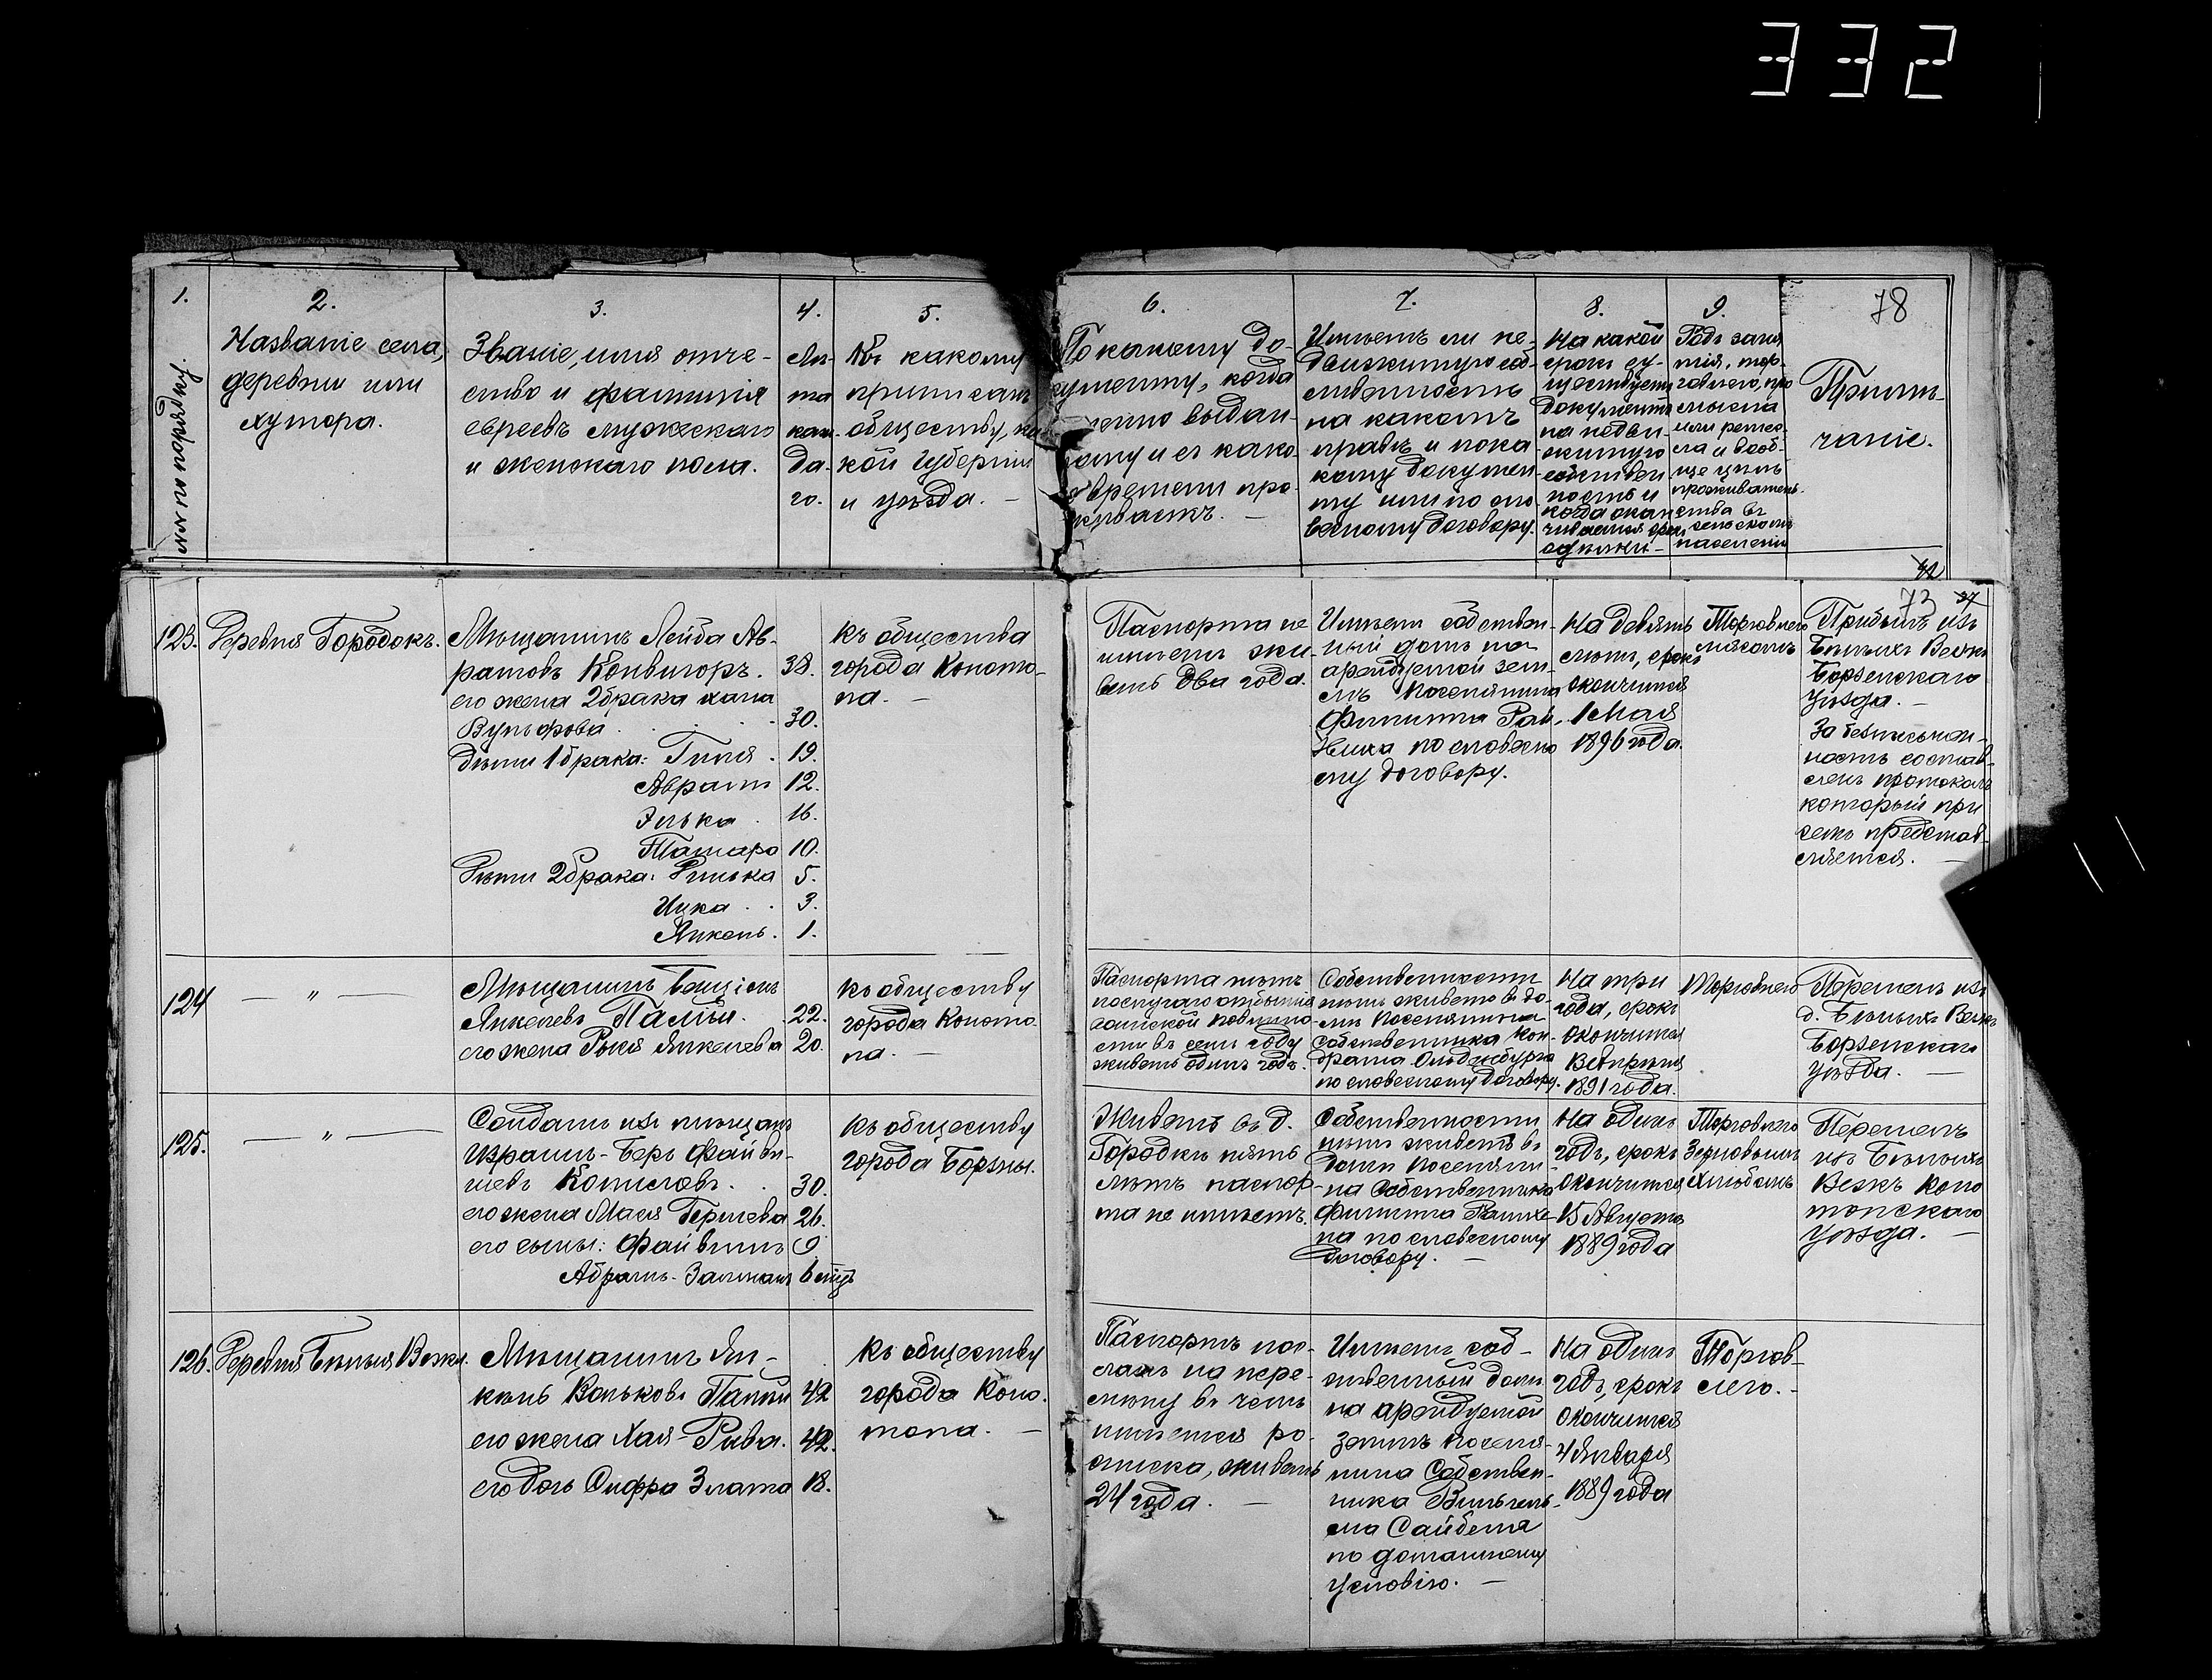 332
1.
№№ по порядку.
2.
Названіе села,
деревни или
хутора.
3.
Званіе, имя отче-
ство и фамилія
евреевъ мужескаго
и женскаго пола.
4.
Лѣ-
та
каж-
да-
го.
5.
Къ какому
приписанъ
обществу, ка
кой губерніи
и уѣзда. —
6.
По какому до-
кументу, когда
выдан-
ному и съ како-
времени про-
живаетъ. —
7.
Имѣетъ ли не-
движимую соб-
ственность
на какомъ
правѣ и по ка
кому докумен
ту или по сло
весному договору.
8.
На какой
срокъ су-
ществуетъ
документъ
на недви-
жимую
собствен
ность и
когда окан
чивается срокъ
9.
Родъ заня
тія, тор-
говлею, про
мысла
или ремес
ла и вооб-
ще цѣль
проживатель-
ства въ
сельскомъ
населеніи
78
Примѣ-
чаніе.
42
73 37
123.
Деревня Городокъ.
Мѣщанинъ Лейба Ав-
рамовъ Конвигоръ. 38.
его жена 2 брака Хана
Вульфова . . . 30.
дѣти 1 брака: Гиня . 19.
Аврамъ 12.
Элька . 16.
Тамара 10.
Дѣти 2 брака: Ринька 5.
Ицка . . 3.
Янкель . 1.
къ общества
города Коното-
па. —
Паспорта не
имѣетъ жи-
ветъ два года.
Имѣетъ собствен-
ный домъ на
арендуемой зем-
лѣ поселянина
Филиппа Рай-
хмана по словесно
му договору.
На девять
лѣтъ, срокъ
окончится
1 Мая
1896 года.
Торговлею
мясомъ
Прибылъ изъ
Бѣлыхъ Вежъ
Борзенскаго
уѣзда. —
За безписьмен-
ность состав-
ленъ протоколъ
который при
семъ представ-
ляется. —
124
— " —
Мѣщанинъ Бенціонъ
Янкелевъ Палѣй. . 22.
его жена Рыся Янкелева 20.
къ обществу
города Коното-
па. —
Паспорта нѣтъ
по случаю отбытія
воинской повинно
сти въ семъ году
живетъ одинъ годъ.
Собственности
нѣтъ живетъ въ до-
мѣ поселянина
собственника Кон-
драта Ольденбурга
по словесному договору.
На три
года, срокъ
окончится
8 Апрѣля
1891 года.
Торговлею
Перешелъ изъ
д. Бѣлыхъ Вежъ
Борзенскаго
уѣзда. —
125.
— " —
Солдатъ изъ мѣщанъ
Израиль-Беръ Файви-
шевъ Копиловъ. . 30.
его жена Мася Гершева 26.
его сыны: Файвишъ 9.
Абрамъ-Залманъ 6 мѣс.
къ обществу
города Борзны.
Живетъ въ д.
Городкѣ пять
лѣтъ паспор-
та не имѣетъ.
Собственности
нѣтъ живетъ въ
домѣ поселяни-
на собственника
Филиппа Райхе
на по словесному
договору. —
На одинъ
годъ, срокъ
окончится
15 Августа
1889 года
Торговлею
Зерновымъ
Хлѣбомъ
Перешелъ
изъ Бѣлыхъ
Вежъ Коно
топскаго
уѣзда. —
126.
Деревня Бѣлыя Вежи.
Мѣщанинъ Ян-
кель Вольковъ Палѣй 42
его жена Хая-Рива. 42.
его дочь Сифра Злата 18.
Къ обществу
города Коно-
топа. —
Паспортъ пос-
ланъ на пере-
мѣну въ чемъ
имѣется ро-
списка, живетъ
24 года. —
Имѣетъ соб-
ственный домъ
на арендуемой
землѣ поселя-
нина собствен-
ника Вильгель-
ма Сайбеля
по домашнему
условію. —
На одинъ
годъ, срокъ
окончится
4 Января
1889 года
Торгов-
лею. -